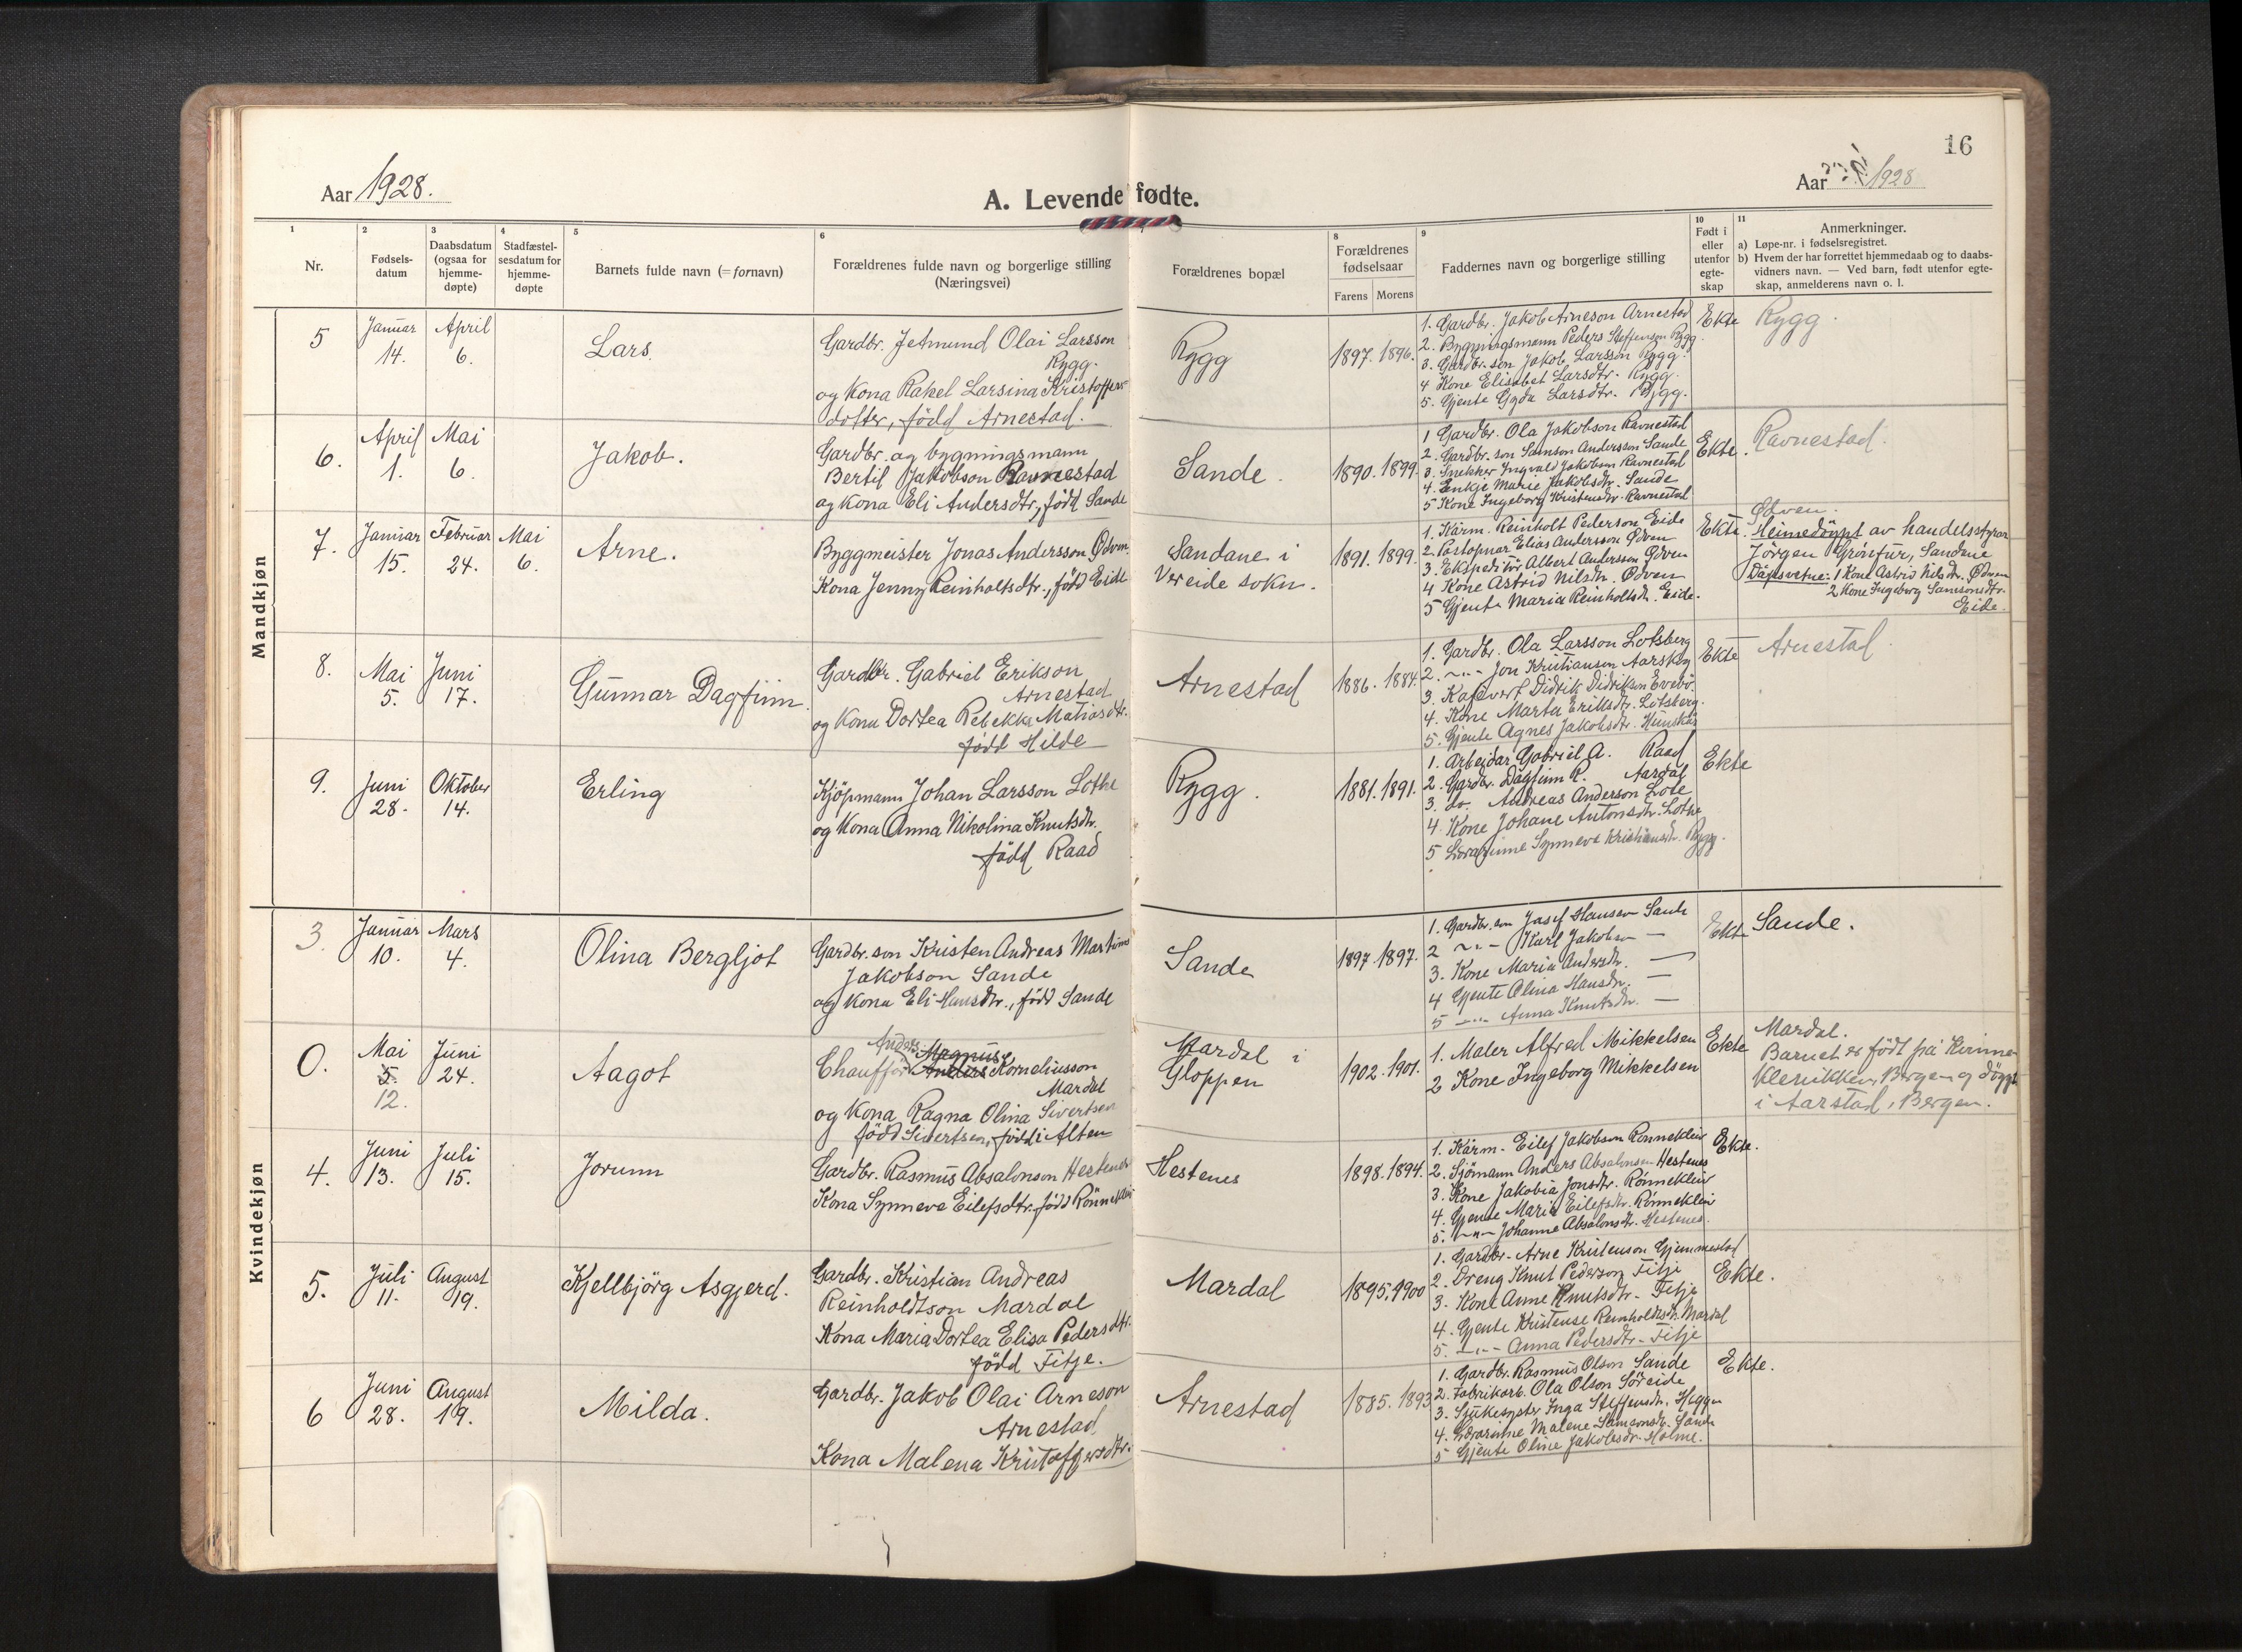 16
Aar 1928.
A. Levende fødte.
Aar 1928
1
2
3
4
5
6
8
9
10
11
Nr.
Fødsels-
datum
Daabsdatum
(ogsaa for
hjemme-
døpte)
Stadfæstel-
sesdatum for
hjemme-
døpte
Barnets fulde navn (= fornavn)
Forældrenes fulde navn og borgerlige stilling
(Næringsvei)
Forældrenes bopæl
Forældrenes
fødselsaar
Farens
Morens
Faddernes navn og borgerlige stilling
Født i
eller
utenfor
egte-
skap
Anmerkninger.
a) Løpe-nr. i fødselsregistret.
b) Hvem der har forrettet hjemmedaab og to daabs-
vidners navn. — Ved barn, født utenfor egte-
skap, anmelderens navn o. l.
Mandkjøn
5
Januar
14.
April
6.
Lars.
Gardbr. Jetmund Olai Larsson
Rygg.
og kona Rakel Larsina Kristoffers-
dotter, född Arnestad.
Rygg
1897. 1896.
1. Gardbr. Jakob Arneson Arnestad
2. Bygningsmann Peders Steffenson Rygg
3. Gardbr. son Jakob Larsson Rygg.
4 Kone Elisabet Larsdtr. Rygg.
5. Gjente Gyda Larsdtr. Rygg.
Ekte
Rygg.
6.
April
1.
Mai
6.
Jakob.
Gardbr. og bygningsmann
Bertil Jakobson Ravnestad
og kona Eli Andersdtr., född Sande
Sande.
1890. 1899.
1 Gardbr. Ola Jakobson Ravnestad
2. Gardbr. son Samson Andersson Sande
3. Snekker Ingvald Jakobson Ravnestad
4. Enkje Marie Jakobsdtr. Sande
5 Kone Ingeborg Kristensdtr. Ravnestad
Ekte.
Ravnestad.
7.
Januar
15.
Februar
24.
Mai
6.
Arne.
Byggmeister Jonas Andersson Ødven.
Kona Jenny Reinholtsdtr., född Eide
Sandane i
Vereide sokn.
1891. 1899
1. Kårm. Reinholt Pederson Eide
2. Postopnar Elias Andersson Ødven
3. Ekspeditör Albert Andersson Ødven
4 Kone Astrid Nilsdtr. Ødven
5 Gjente Maria Reinholtsdtr. Eide.
Ekte.
Ødven.
Heimedöypt av handelsstyrar
Jörgen Grönfur, Sandane
Dåpsvetne: 1 Kone Astrid Nilsdtr. Ødven
2 Kone Ingeborg Samsonsdtr.
Eide.
8.
Mai
5.
Juni
17.
Gunnar Dagfinn.
Gardbr. Gabriel Erikson
Arnestad
og kona Dortea Rebekka Matiasdtr.
född Hilde
Arnestad
1886. 1884.
1. Gardbr. Ola Larsson Lotsberg
2. -"- Jon Kristianson Aarskog
3. Kafévert Didrik Didrikson Evebö.
4. Kone Marta Eriksdtr. Lotsberg.
5. Gjente Agnes Jakobsdtr. Hunskår
Ekte
Arnestad.
9.
Juni
28.
Oktober
14.
Erling
Kjöpmann Johan Larsson Lothe
og kona Anna Nikolina Knutsdtr.
född Raad
Rygg.
1881. 1891.
1. Arbeidar Gabriel A. Raad
2. Gardbr. Dagfinn R. Aardal
3. do. Andreas Anderson Lote
4. Kone Johane Antonsdtr. Lothe
5 Lærarinne Synneve Kristiansdtr. Rygg.
Ekte
Kvindekjøn
3.
Januar
10.
Mars
4.
Olina Bergljot
Gardbr. son Kristen Andreas Martinus
Jakobson Sande
og kona Eli Hansdtr., född Sande
Sande
1897. 1897.
1. Gardbr. son Josef Hanson Sande
2 -"- Karl Jakobson —
3. Kone Maria Andersdtr. —
4 Gjente Olina Hansdtr. —
5 -"- Anna Knutsdtr. —
Ekte
Sande.
0.
Mai
5.
12.
Juni
24.
Aagot
Anders Magnus
Chauffør Anders Korneliusson
Mardal
og kona Ragna Olina Sivertsen
född Sivertsen, född i Alten
Mardal i
Gloppen
1902. 1901.
1. Maler Alfred Mikkelsen
2 Kone Ingeborg Mikkelsen
Ekte
Mardal.
Barnet er født på Kvinne-
klenikken, Bergen og döypt
i Aarstad, Bergen.
4.
Juni
13.
Juli
15.
Jorunn
Gardbr. Rasmus Absalonson Hestenes
Kona Synneve Eilefsdtr. född Rönneklei
Hestenes
1898. 1894.
1. Kårm. Eilef Jakobson Rönnekleiv
2. Sjömann Anders Absalonson Hestenes
3. Kone Jakobia Jonsdtr. Rönnekleiv
4. Gjente Maria Eilefsdtr. Rönnekleiv
5. -"- Johanne Absalonsdtr. Hestenes.
Ekte.
5.
Juli
11.
August
19.
Kjellbjörg Asgjerd.
Gardbr. Kristian Andreas
Reinholdtson Mardal
Kona Maria Dortea Elisa Pedersdtr.
född Fitje.
Mardal
1895. 1900
1. Gardbr. Arne Kristenson Gjemmestad
2. Dreng Knut Pederson Fitje
3. Kone Anne Knutsdtr. Fitje
4. Gjente Kristense Reinholdtsdtr. Mardal
5. -"- Anna Pedersdtr. Fitje
Ekte.
6
Juni
28.
August
19.
Milda.
Gardbr. Jakob Olai Arneson
Arnestad
Kona Malena Kristoffersdtr.
Arnestad
1885. 1893
1. Gardbr. Rasmus Olson Sande
2. Fabrikarb. Ola Olson Söreide
3. Sjukesyster Inga Steffensdtr. Heggen
4. Lærarinne Malene Samsonsdtr. Sande
5 Gjente Oline Jakobsdtr. Holme.
Ekte.